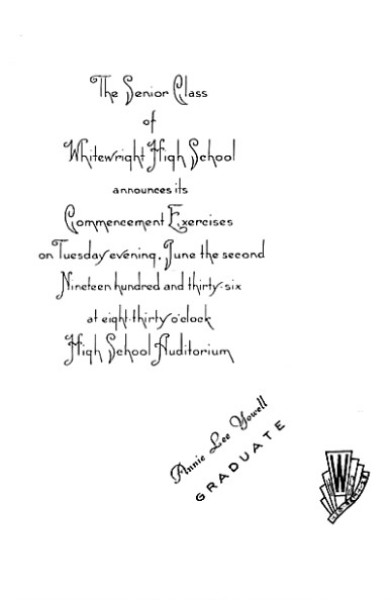 The Senior Class
of
Whitewright High School
announces its
Commencement Exercises
on Tuesday evening, June the second
Nineteen hundred and thirty-six
at eight-thirty o'clock
High School Auditorium
Annie Lee Yowell
GRADUATE
W